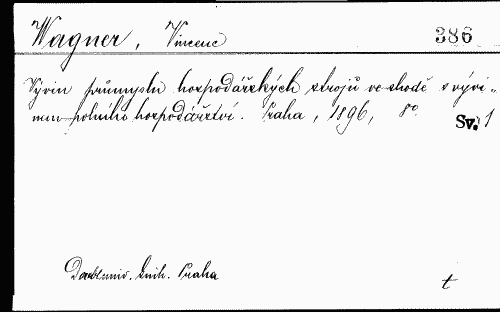 Wagner, Vincenc 386
Vývin průmyslu hospodářských strojů ve shodě s vývi-
nem polního hospodářství. Praha, 1896, 8° Sv. 1
Knih. Praha
t